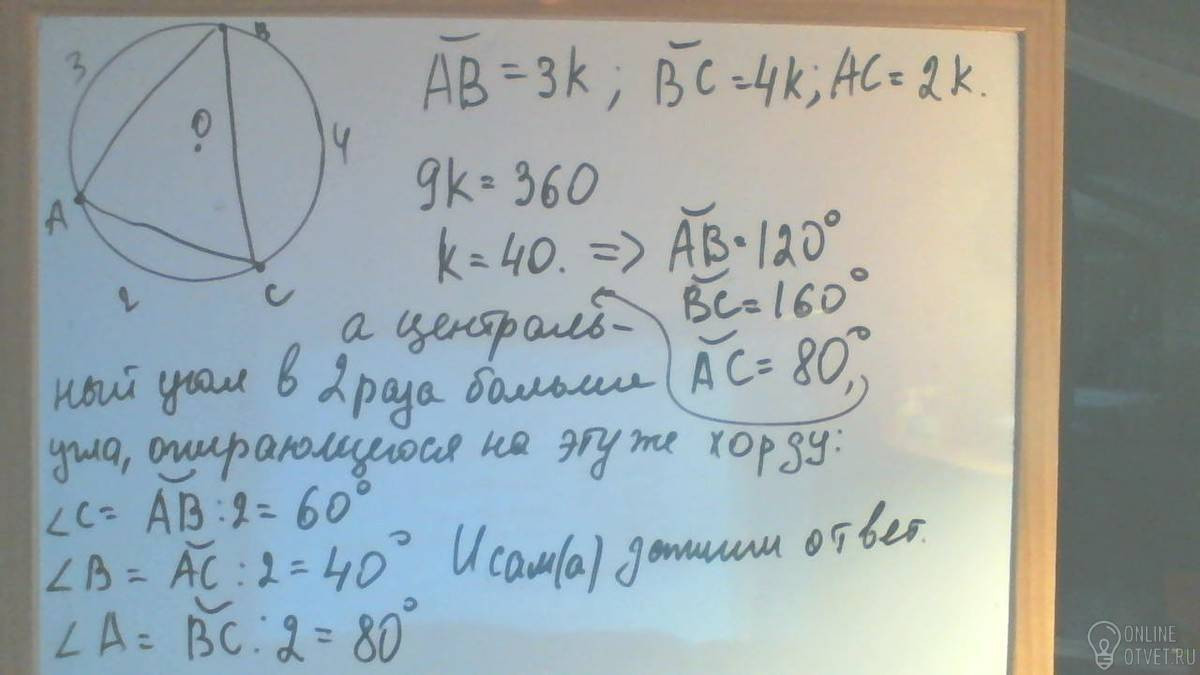 B
3
O
4
A
2
C
AB = 3k ; BC = 4k; AC = 2k.
9k = 360
k = 40. => AB = 120°
BC = 160°
AC = 80°,
а централь-
ный угол в 2 раза больше
угла, опирающегося на эту же хорду:
∠C = AB : 2 = 60°
∠B = AC : 2 = 40°
∠A = BC : 2 = 80°
И сам(а) допиши ответ.
ONLINE
OTVET.RU